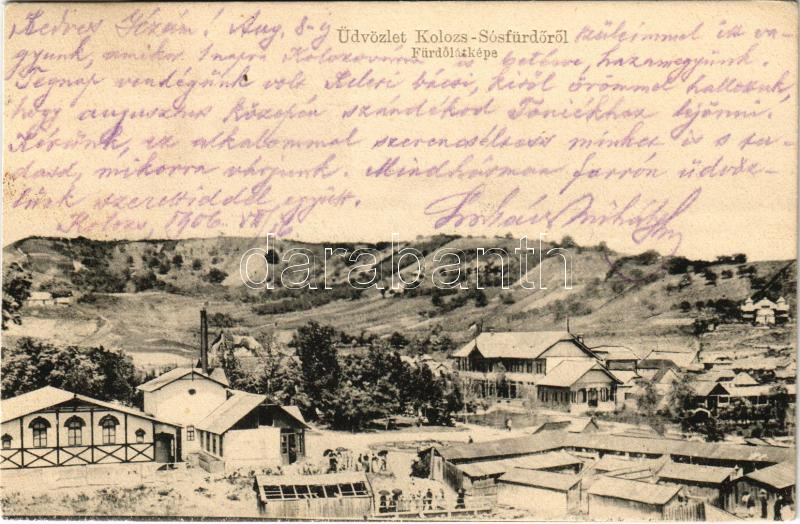 Üdvözlet Kolozs-Sósfürdőről
Fürdőlátképe
Kedves Józsim! Aug. 8-ig szüleimmel itt va-
gyunk, amikor 1 napra Kolozsvárra is betérve, hazamegyünk.
Tegnap vendégünk volt bácsi, kitől örömmel hallottuk,
hogy augusztus közepén szándékod Toniékhoz kijönni.
Kérünk, ez alkalommal szerencséltess minket is s tu-
dasd, mikorra várjunk. Mindhárman forrón üdvöz-
lünk szeretteiddel együtt.
Kolozs, 1906. VIII/6. Mihály
darabanth